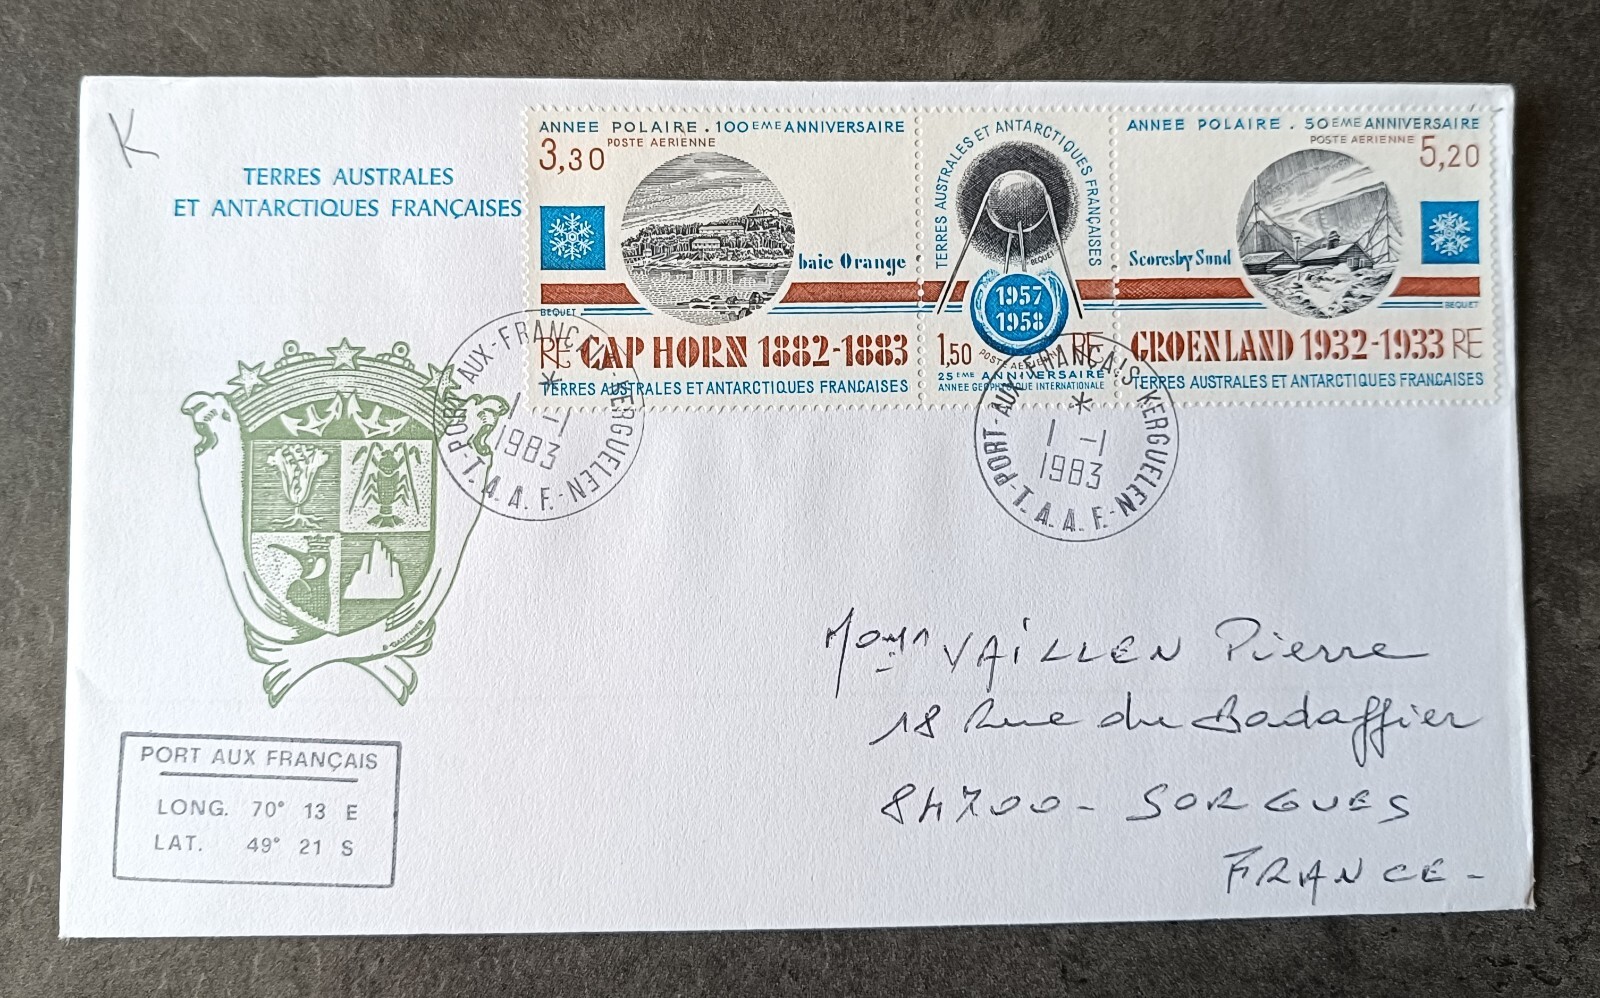 K
TERRES AUSTRALES
ET ANTARCTIQUES FRANÇAISES
ANNEE POLAIRE . 100EME ANNIVERSAIRE
POSTE AERIENNE
3,30
baie Orange
BEQUET
RF CAP HORN 1882-1883
TERRES AUSTRALES ET ANTARCTIQUES FRANCAISES
TERRES AUSTRALES ET ANTARCTIQUES FRANÇAISES
BEQUET
1957
1958
1,50 POSTE AERIENNE RF
25EME ANNIVERSAIRE
ANNEE GEOPHYSIQUE INTERNATIONALE
ANNEE POLAIRE . 50EME ANNIVERSAIRE
POSTE AERIENNE 5,20
Scoresby Sund
BEQUET
GROENLAND 1932-1933 RF
TERRES AUSTRALES ET ANTARCTIQUES FRANCAISES
PORT-AUX-FRANCAIS-KERGUELEN
*
1 -1
1983
T.A.A.F.
PORT-AUX-FRANCAIS-KERGUELEN
*
1 -1
1983
T.A.A.F.
PORT AUX FRANÇAIS
LONG. 70° 13 E
LAT. 49° 21 S
VAILLEN Pierre
18 Rue du Badaffier
84700 - SORGUES
FRANCE -